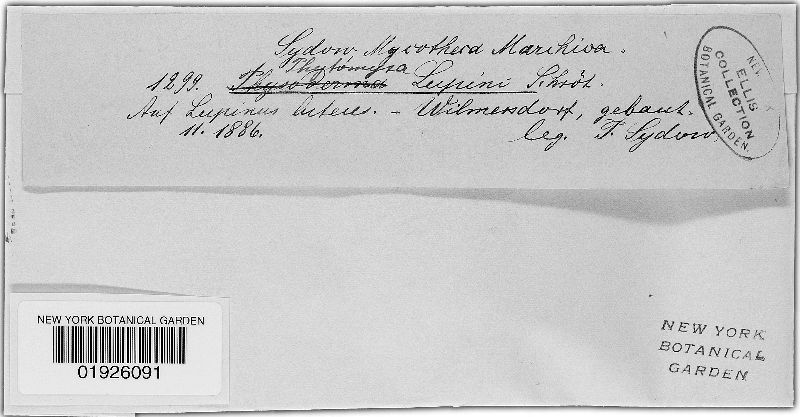 Sydow Mycotheca Marchica.
Phytomyxa
1299. Physoderma Lupini Schröt.
Auf Lupinus luteus. – Wilmersdorf, gebaut.
11. 1886. leg. P. Sydow.
ELLIS
COLLECTION
BOTANICAL GARDEN
NEW YORK BOTANICAL GARDEN
01926091
NEW YORK
BOTANICAL
GARDEN